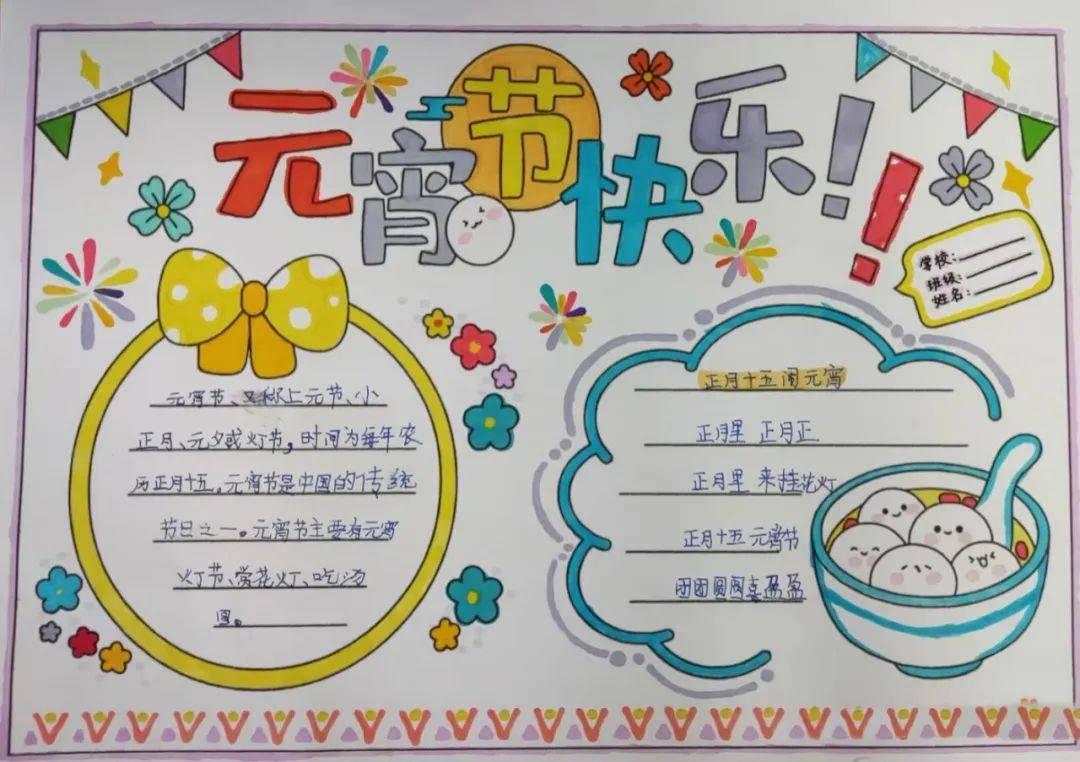 元宵节快乐!!
学校:
班级:
姓名:
元宵节、又称上元节、小
正月、元夕或灯节,时间为每年农
历正月十五。元宵节是中国的传统
节日之一。元宵节主要有元宵
灯节、赏花灯、吃汤
圆。
正月十五闹元宵
正月里 正月正
正月里 来挂花灯
正月十五 元宵节
团团圆圆喜盈盈